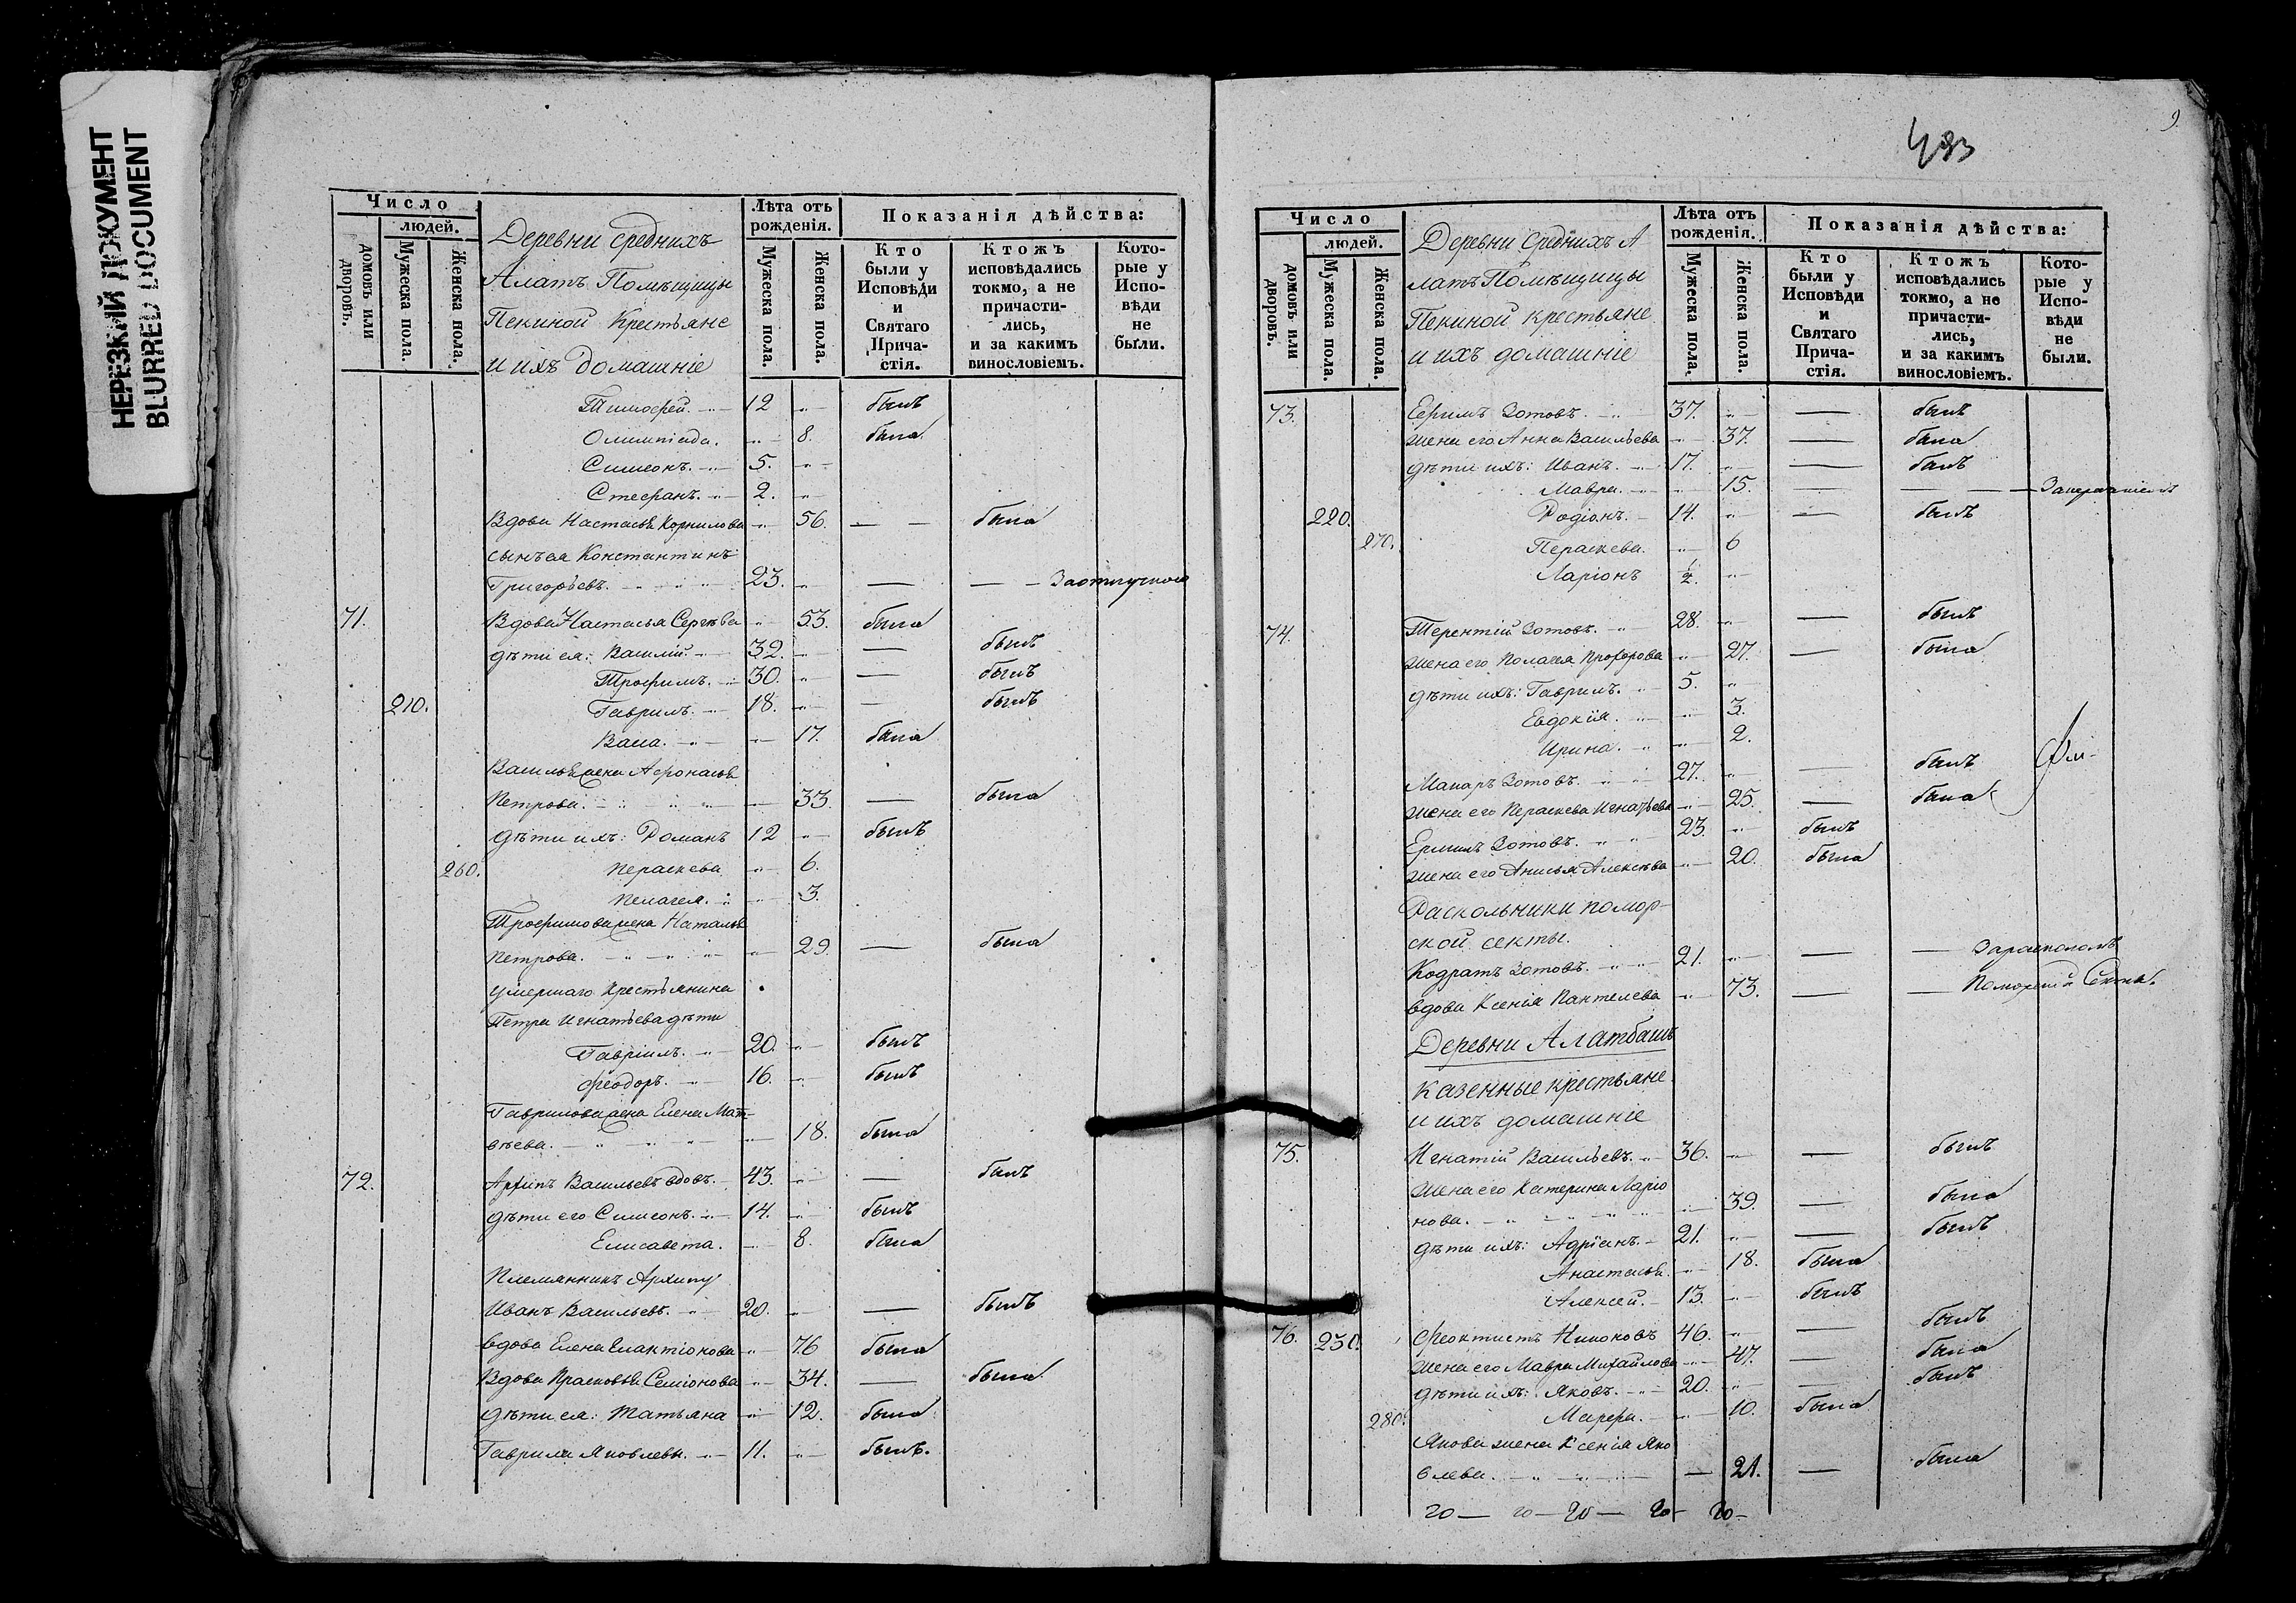 НЕРЕЗКИЙ ДОКУМЕНТ
BLURRED DOCUMENT
Число
людей.
домовъ или дворовъ.
Мужеска пола.
Женска пола.
Деревни Среднихъ
Алатъ Помѣщицы
Пекиной Крестьяне
и ихъ домашніе
Лѣта отъ рожденія.
Мужеска пола.
Женска пола.
Показанія дѣйства:
Кто были у Исповѣди и Святаго Причастія.
Ктожъ исповѣдались токмо, а не причастились, и за какимъ винословіемъ.
Которые у Исповѣди не были.
Тимофей. 12 былъ
Олимпіада. 8. была
Симеонъ. 5.
Стефанъ. 2.
Вдова Настасья Корнилова 56. — — была
сынъ ея Константинъ
Григорьевъ. 23. — — За отлучкою
71. Вдова Настасья Сергѣева 53. была
дѣти ея: Василій. 32. — былъ
Трофимъ. 30. — былъ
210. Гаврилъ. 18. — былъ
Васса. 17. была
Васильева жена Афонасья
Петрова. 33 — была
дѣти ихъ: Романъ 12 былъ
260. Пераскева 6.
Пелагея. 3.
Трофимова жена Наталья
Петрова. 29. — была
умершаго Крестьянина
Петра Игнатьева дѣти
Гавріилъ. 20. былъ
Феодоръ. 16. былъ
Гаврилова жена Елена Мат-
вѣева. 18. была
72. Архипъ Васильевъ вдовъ. 43. — былъ
дѣти его Симеонъ. 14. былъ
Елисавета. 8. была
Племянникъ Архипу
Иванъ Васильевъ. 20. — былъ
вдова Елена Галактіонова 76 была
Вдова Прасковья Семіонова 34. — была
дѣти ея: Татьяна 12. была
Гаврила Яковлевъ. 11. былъ.
9.
493
Число
людей.
домовъ или дворовъ.
Мужеска пола.
Женска пола.
Деревни Среднихъ А
латъ Помѣщицы
Пекиной крестьяне
и ихъ домашніе
Лѣта отъ рожденія.
Мужеска пола.
Женска пола.
Показанія дѣйства:
Кто были у Исповѣди и Святаго Причастія.
Ктожъ исповѣдались токмо, а не причастились, и за какимъ винословіемъ.
Которые у Исповѣди не были.
73. Ефимъ Зотовъ. 37. — былъ
жена его Анна Васильева 37. — была
дѣти ихъ: Иванъ. 17. — былъ
Мавра. 15. — — —
220. Родіонъ. 14. — былъ
270. Пераскева. 6
Ларіонъ ½.
74. Терентій Зотовъ. 28. — былъ
жена его Пелагея Прохорова 27. — была
дѣти ихъ: Гаврилъ. 5.
Евдокія. 3.
Ирина. 2.
Макаръ Зотовъ. 27. — былъ
жена его Пераскева Игнатьева 25. — была
Ермилъ Зотовъ. 23. былъ
жена его Анисья Алексѣева 20. была
Раскольники помор-
ской секты.
Кодратъ Зотовъ. 21. — — За расколомъ
вдова Ксенія Пантелева 73. — — Поморской Секты.
Деревни Алатбашъ
казенные крестьяне
и ихъ домашніе
75. Игнатій Васильевъ. 36. — былъ
жена его Катерина Ларіо
нова. 39. — была
дѣти ихъ: Адріанъ. 21. — былъ
Анастасья. 18. была
Алексей. 13. былъ
76. 230. Феоктистъ Никоновъ 46. — былъ
жена его Мавра Михайлова 47. — была
дѣти ихъ: Яковъ. 20. — былъ
280. Марфа. 10. была
Якова жена Ксенія Яко
влева. — 21. — была
20 — 20 — 20 — 20 — 20 —